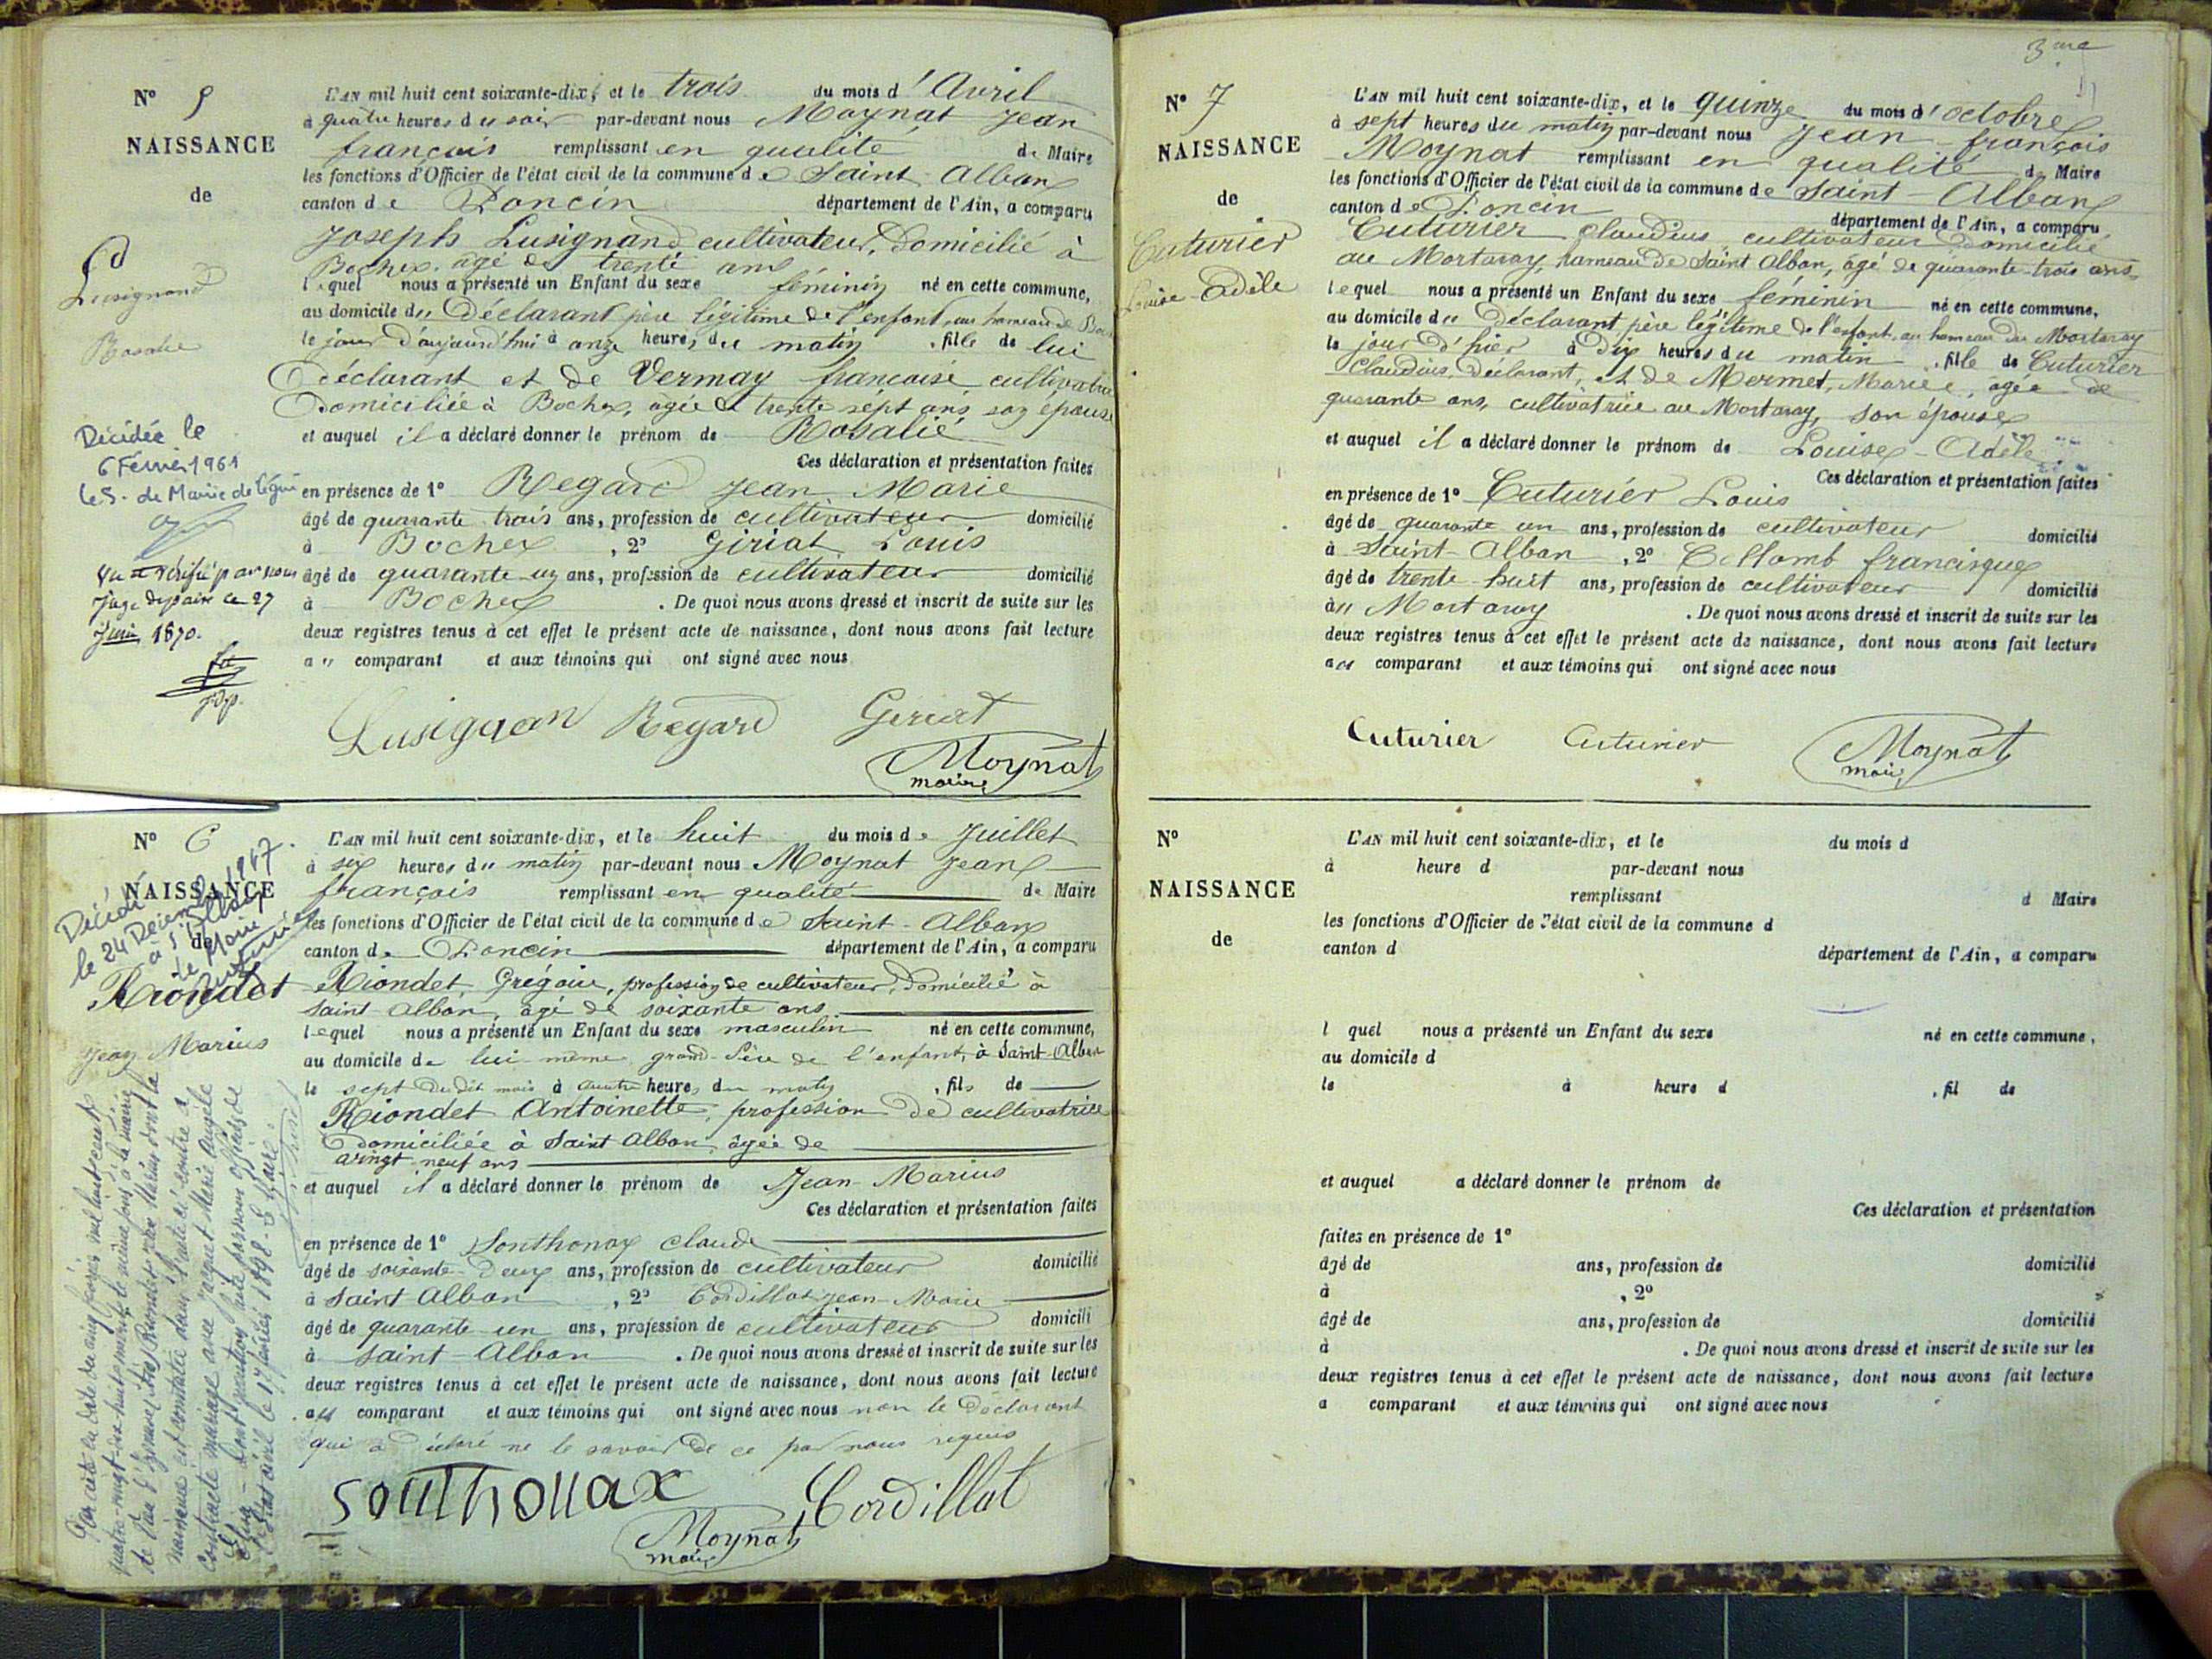 N° 5
NAISSANCE
de
Lusignand
Rosalie
Décédée le
6 Février 1961
le S. de Mairie de
Vu et vérifié par nous
Juge de paix ce 27
Juin 1870.
L'AN mil huit cent soixante-dix, et le trois du mois d'Avril
à quatre heures du soir par-devant nous Moynat Jean
françois remplissant en qualité de Maire
les fonctions d'Officier de l'état civil de la commune de Saint-Alban
canton de Poncin département de l'Ain, a comparu
Joseph Lusignand cultivateur, domicilié à
Bochex, âgé de trente ans
lequel nous a présenté un Enfant du sexe féminin né en cette commune,
au domicile du Déclarant père légitime de l'enfant, au hameau de
le jour d'aujourd'hui à onze heures du matin, fille de lui
déclarant et de Vermay françoise cultivatrice
Domiciliée à Bochex, agée de trente sept ans, son épouse
et auquel il a déclaré donner le prénom de Rosalie
Ces déclaration et présentation faites
en présence de 1° Regard Jean Marie
âgé de quarante trois ans, profession de cultivateur domicilié
à Bochex, 2° Giriat Louis
âgé de quarante-un ans, profession de cultivateur domicilié
à Bochex. De quoi nous avons dressé et inscrit de suite sur les
deux registres tenus à cet effet le présent acte de naissance, dont nous avons fait lecture
au comparant et aux témoins qui ont signé avec nous
Lusignan Regard Geriat
Moynat
maire
N° 6
NAISSANCE
de
Décédé
le 24 Décembre 1947
à St Alban
le Maire
Cuturier
Riondet
Jean Marius
Par acte en date du cinq février mil huit cent
quatre-vingt-dix-huit
Riondet Jean Marius dont la
naissance est constatée dans l'acte ci-contre a
contracté mariage avec Jacquet Marie Angèle
l'Etat civil le 17 février 1898. Le Maire.
L'AN mil huit cent soixante-dix, et le huit du mois de Juillet
à six heures du matin par-devant nous Moynat Jean
françois remplissant en qualité de Maire
les fonctions d'Officier de l'état civil de la commune de Saint-Alban
canton de Poncin département de l'Ain, a comparu
Riondet, Grégoire, profession de cultivateur, domicilié à
saint alban, âgé de soixante ans
lequel nous a présenté un Enfant du sexe masculin né en cette commune,
au domicile de lui-même grand-Père de l'enfant, à Saint-Alban
le sept du dit mois à quatre heures du matin, fils de
Riondet Antoinette, profession de cultivatrice
Domiciliée à Saint Alban, âgée de
vingt-neuf ans
et auquel il a déclaré donner le prénom de Jean-Marius
Ces déclaration et présentation faites
en présence de 1° Sonthonax Claude
âgé de soixante-Deux ans, profession de cultivateur domicilié
à Saint Alban, 2° Cordillot Jean-Marie
âgé de quarante-un ans, profession de cultivateur domicili
à Saint-Alban. De quoi nous avons dressé et inscrit de suite sur les
deux registres tenus à cet effet le présent acte de naissance, dont nous avons fait lecture
au comparant et aux témoins qui ont signé avec nous non le Déclarant
qui a déclaré ne le savoir de ce par nous requis
Sonthonax Cordillat
Moynat
maire
3me
N° 7
NAISSANCE
de
Cuturier
Louise-Adèle
L'AN mil huit cent soixante-dix, et le quinze du mois d'octobre
à sept heures du matin par-devant nous Jean-françois
Moynat remplissant en qualité de Maire
les fonctions d'Officier de l'état civil de la commune de Saint-Alban
canton de Poncin département de l'Ain, a comparu
Cuturier Claudius, cultivateur domicilié
au Mortaray, hameau de Saint Alban, âgé de quarante-trois ans
lequel nous a présenté un Enfant du sexe féminin né en cette commune,
au domicile du Déclarant père légitime de l'enfant, au hameau du Mortaray
le jour d'hier à Dix heures du matin, fille de Cuturier
Claudius, déclarant, et de Mermet, Marie, agée de
quarante ans, cultivatrice au Mortaray, son épouse
et auquel il a déclaré donner le prénom de Louise-Adèle
Ces déclaration et présentation faites
en présence de 1° Cuturier Louis
âgé de quarante un ans, profession de cultivateur domicilié
à Saint-Alban, 2° Collomb francisque
âgé de trente-huit ans, profession de cultivateur domicilié
au Mortaray. De quoi nous avons dressé et inscrit de suite sur les
deux registres tenus à cet effet le présent acte de naissance, dont nous avons fait lecture
au comparant et aux témoins qui ont signé avec nous
Cuturier Cuturier Moynat
maire
N°
NAISSANCE
de
L'AN mil huit cent soixante-dix, et le du mois d
à heure d par-devant nous
remplissant d Maire
les fonctions d'Officier de l'état civil de la commune d
canton d département de l'Ain, a comparu
l quel nous a présenté un Enfant du sexe né en cette commune,
au domicile d
le à heure d, fil de
et auquel a déclaré donner le prénom de
Ces déclaration et présentation
faites en présence de 1°
âgé de ans, profession de domicilié
à, 2°
âgé de ans, profession de domicilié
à. De quoi nous avons dressé et inscrit de suite sur les
deux registres tenus à cet effet le présent acte de naissance, dont nous avons fait lecture
a comparant et aux témoins qui ont signé avec nous